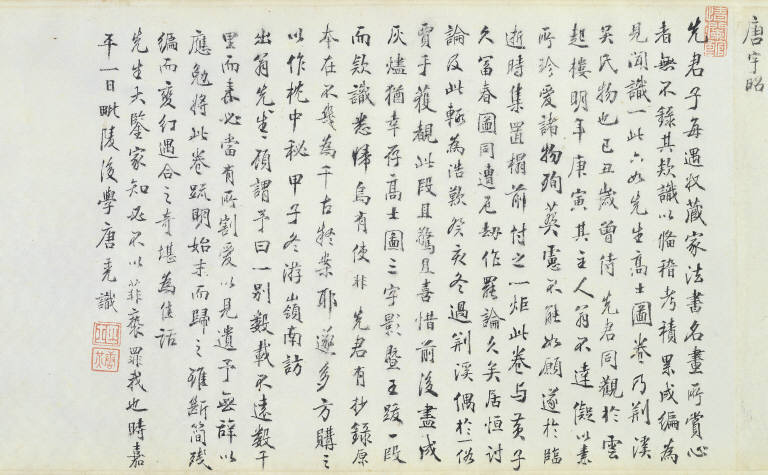 唐宇昭
先君子每遇收藏家法書名畫所賞心
者無不錄其欵識以備稽考積累成編為
見聞識一此六如先生高士圖卷乃荆溪
吴氏物也己丑歲曾侍先君同觀於雲
起樓明年庚寅其主人翁不達儗以素
所珍愛諸物殉葬慮不能如願遂於臨
逝時集置榻前付之一炬此卷与黃子
久富春圖同遭厄劫作罷論久矣居恒討
論及此輒為浩歎癸亥冬過荆溪偶於一俗
賈手獲覩此段且驚且喜惜前後盡成
灰燼猶幸存高士圖三字影暨王跋一段
而欵識悉歸烏有使非先君有抄錄原
本在不幾為千古疑案耶遂多方購之
以作枕中秘甲子冬游嶺南訪
出翁先生頋謂予曰一别數載不遠數千
里而来必當有所割愛以見遺予無辞以
應勉将此卷疏明始末而歸之雖斷簡殘
編而變幻遇合之奇堪為佳話
先生大鑒家知必不以菲褻罪我也時嘉
平一日毗陵後學唐 識